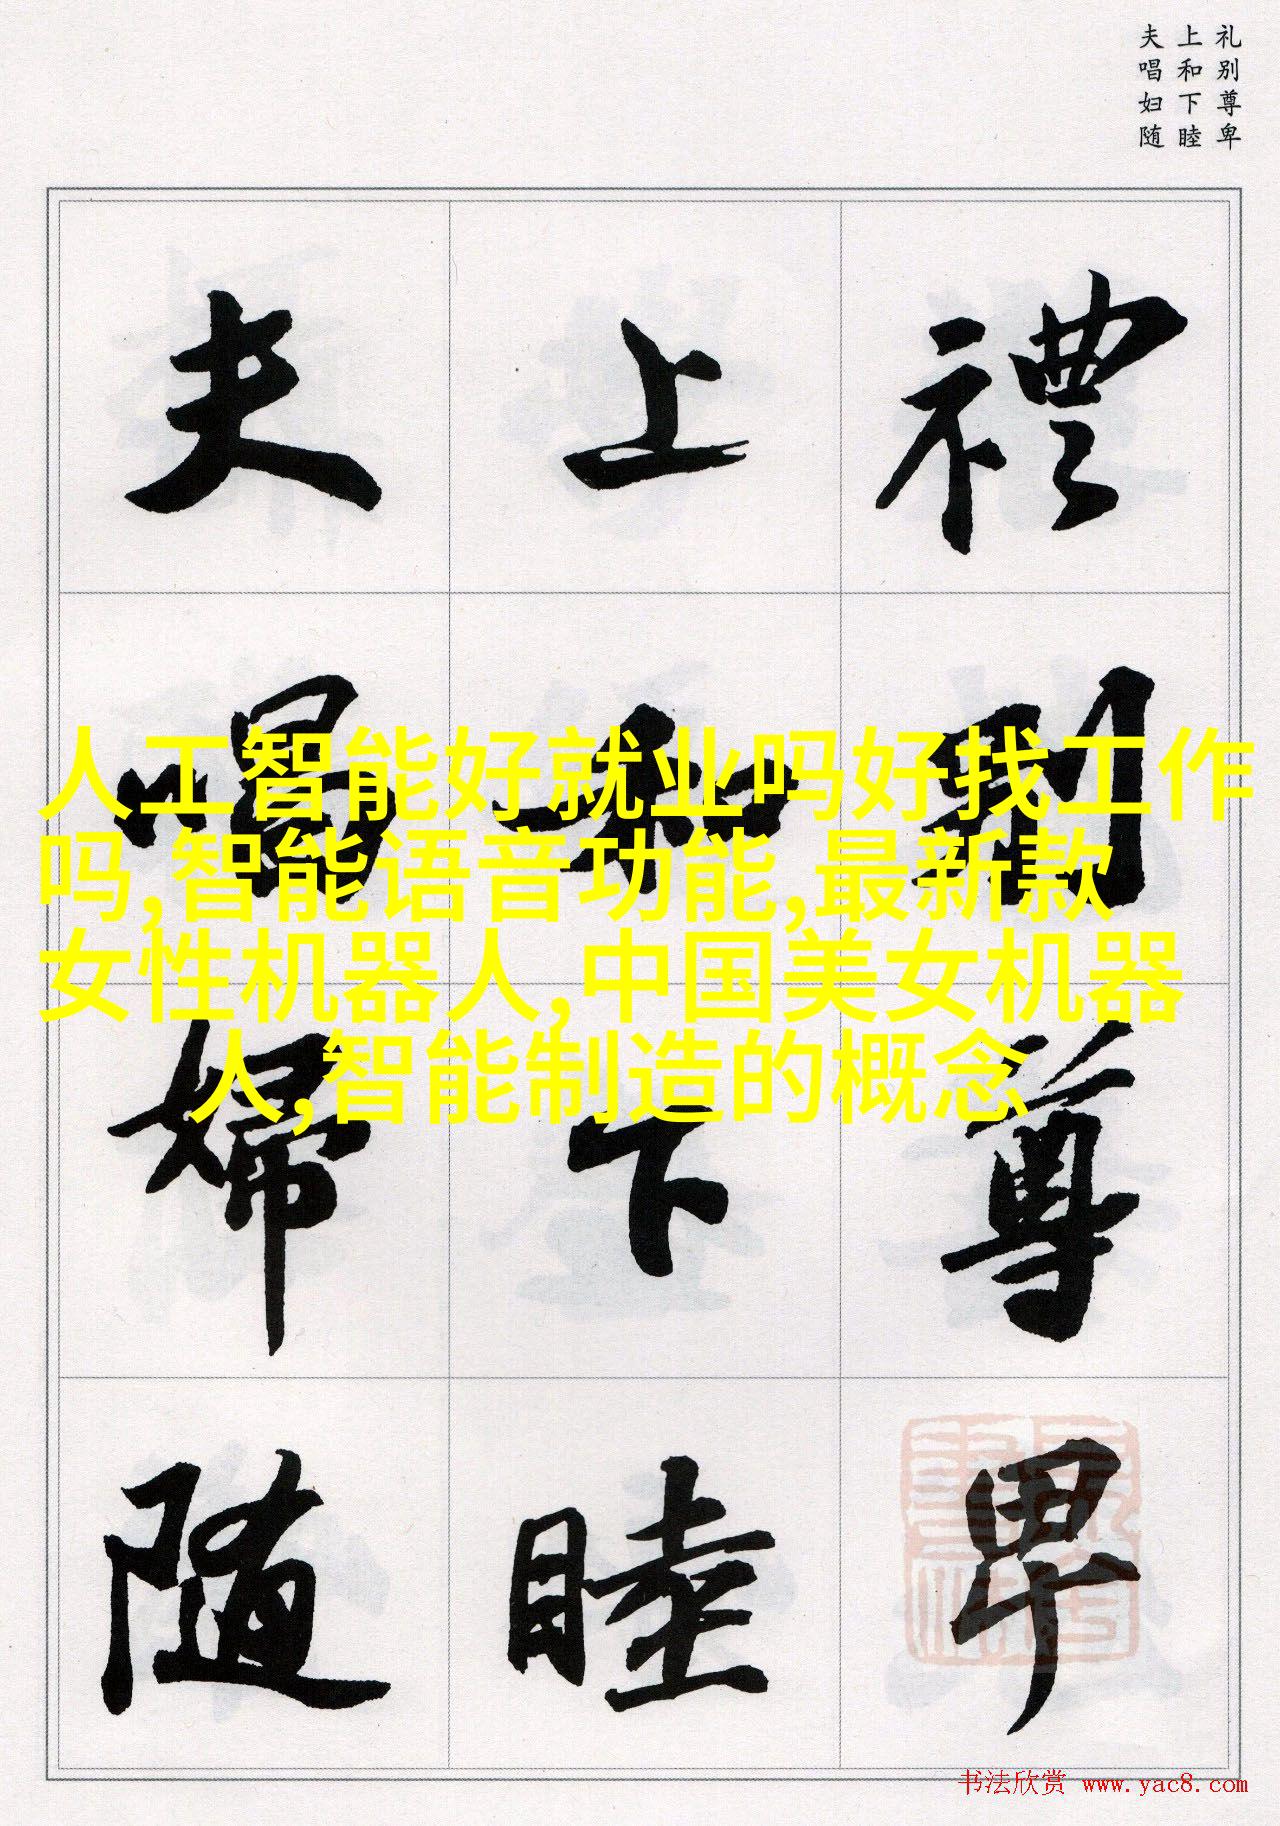 礼别尊卑
上和下睦
夫唱妇随
禮別尊卑
上和下睦
夫唱婦随
人工智能好就业吗好找工作
吗,智能语音功能,最新款
女性机器人,中国美女机器
人,智能制造的概念
书法欣赏 www.yac8.com